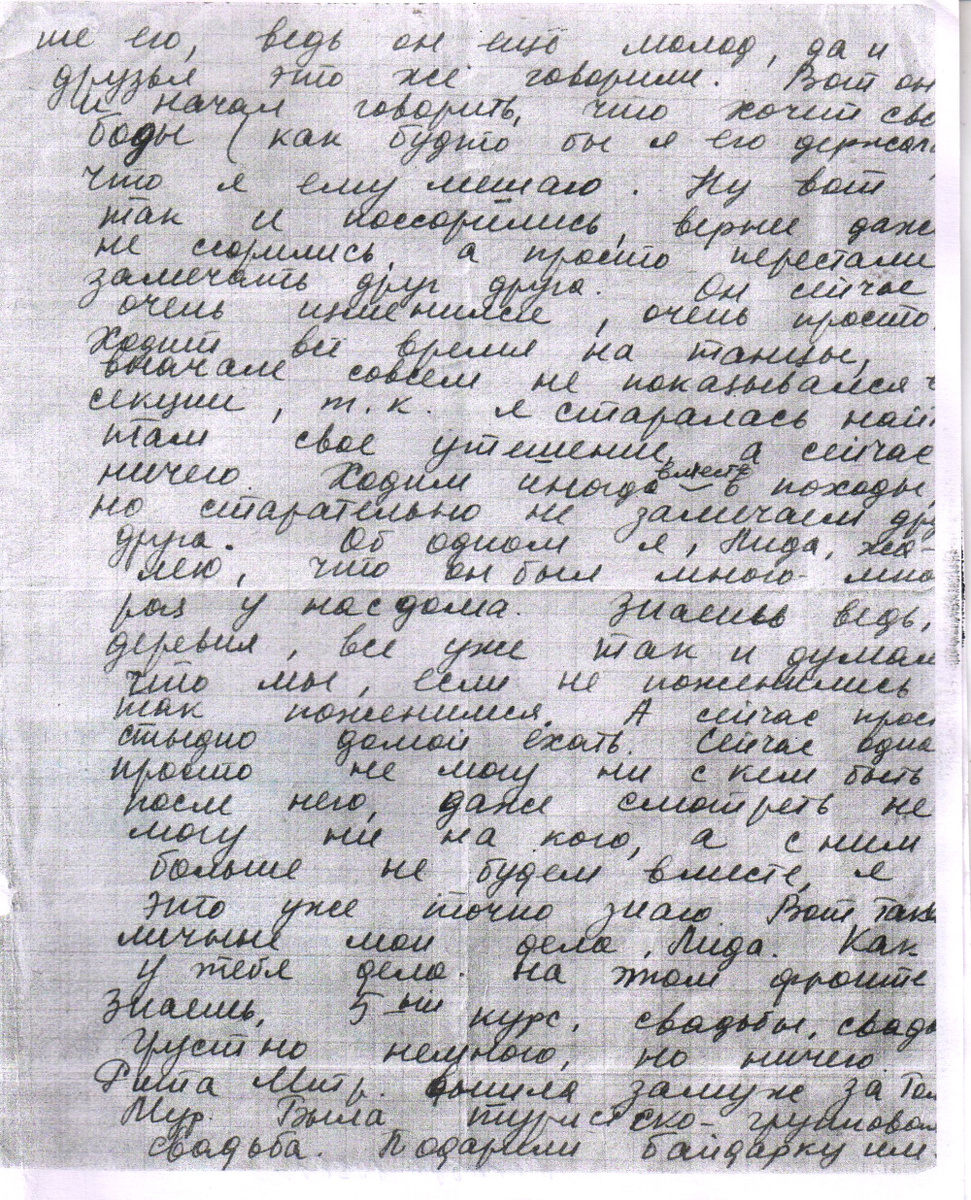 ше его, ведь он ещё молод, да и
друзья это же говорили. Вот он
и начал говорить, что хочет сво
боды (как будто бы я его держала
что я ему мешаю. Ну вот
так и поссорились, верне даже
не сорились, а просто перестали
замечать друг друга. Он сейчас
очень изменился, очень просто.
Ходит все время на танцы,
вначале совсем не показывался в
секции, т.к. я старалась найт
там свое утешение, а сейчас
ничего. Ходим иногда вместе в походы,
но старательно не замечаем дру
друга. Об одном я, Лида, жа-
лею, что он был много-мно
раз у нас дома. Знаешь ведь,
деревня, все уже так и думал
что мы, если не поженились
так поженимся. А сейчас прос
стыдно домой ехать. Сейчас одна
просто не могу ни с кем быть
после него, даже смотреть не
могу ни на кого, а с ним
больше не будем вместе, я
это уже точно знаю. Вот таки
личные мои дела, Лида. Как
у тебя дела на этом фронте
Знаешь, 5ый курс, свадьбы, свадь
грустно немного, но ничего.
Рита Митр. вышла замуж за Тол
Мур. Была турисско-групповая
свадьба. Подарили байдарку им.